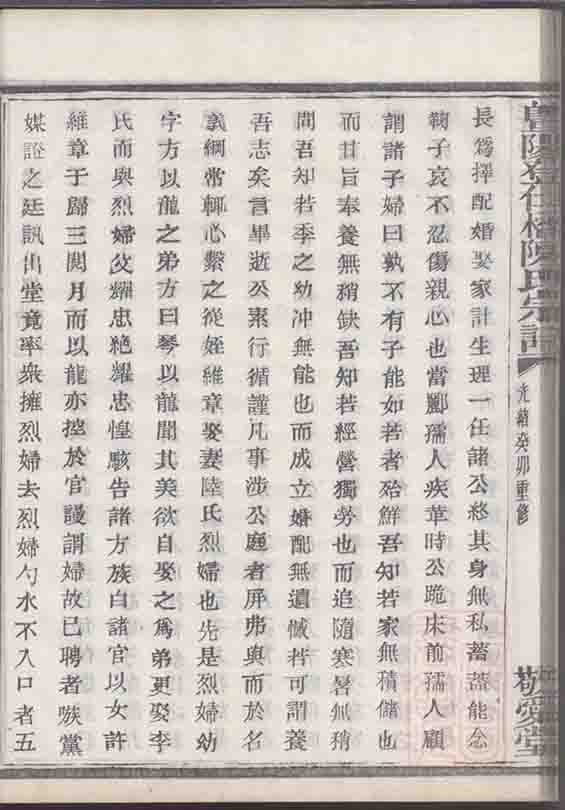 長爲擇配婚娶家計生理一任諸公終其身無私蓄蓄能念
鞠子哀不忍傷親心也當酈孺人疾革時公跪床前孺人顧
謂諸子婦曰孰不有子能如若者殆鮮吾知若家無積儲也
而甘旨奉養無稍缺吾知若經營獨勞也而追隨寒暑無稍
間吾知若季之幼冲無能也而成立婚配無遺憾若可謂養
吾志矣言畢逝公素行循謹凡事涉公庭者屏弗與而於名
義綱常輒心繫之從姪維章娶妻陸氏烈婦也先是烈婦幼
字方以龍之弟方曰琴以龍聞其美欲自娶之爲弟更娶李
氏而與烈婦父耀忠絶耀忠惶駭告諸方族白諸官以女許
維章于歸三閱月而以龍亦控於官謾謂婦故已聘者嗾黨
媒證之廷訊出堂竟率衆擁烈婦去烈婦勺水不入口者五
陽
橋陳氏宗譜
光緒癸卯重修
敬愛堂